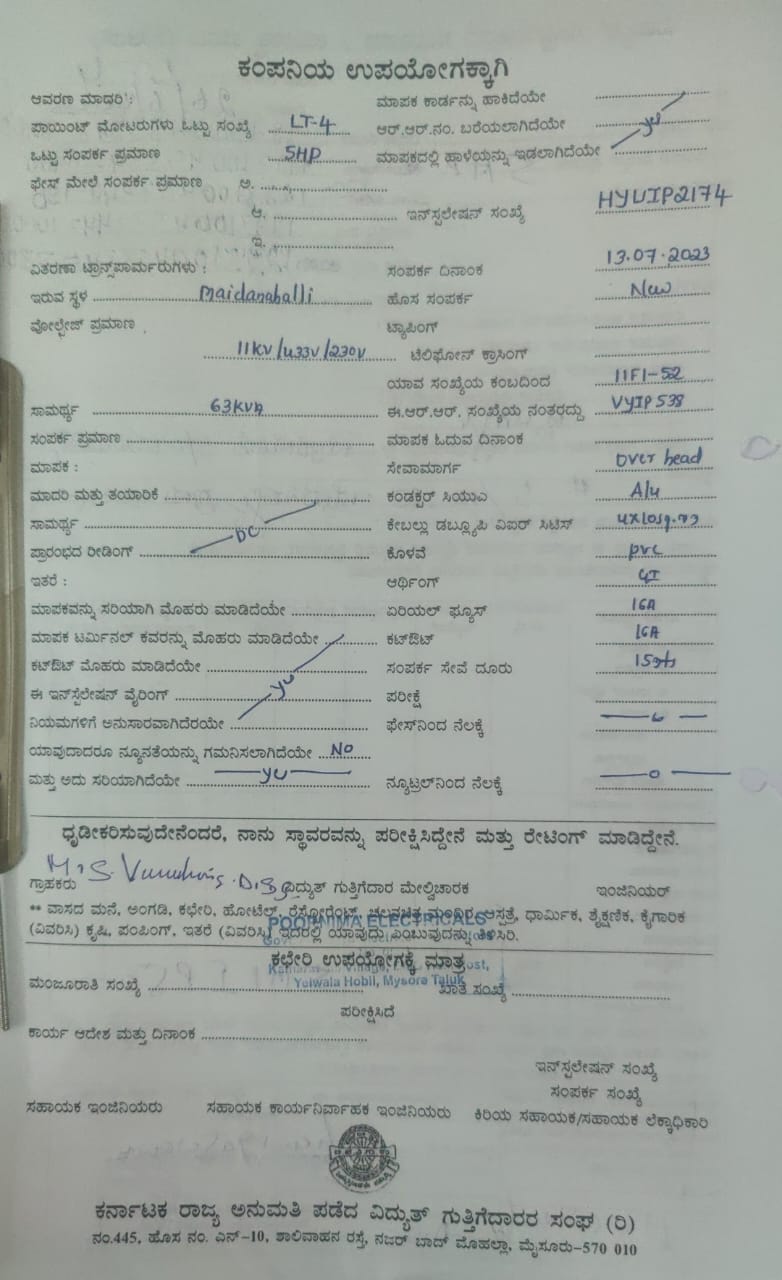 ಕಂಪನಿಯ ಉಪಯೋಗಕ್ಕಾಗಿ
ಆವರಣ ಮಾದರಿ : ಮಾಪಕ ಕಾರ್ಡನ್ನು ಹಾಕಿದೆಯೇ
ಪಾಯಿಂಟ್ ಮೋಟರುಗಳು ಒಟ್ಟು ಸಂಖ್ಯೆ LT-4 ಆರ್.ಆರ್.ನಂ. ಬರೆಯಲಾಗಿದೆಯೇ
ಒಟ್ಟು ಸಂಪರ್ಕ ಪ್ರಮಾಣ 5HP ಮಾಪಕದಲ್ಲಿ ಹಾಳೆಯನ್ನು ಇಡಲಾಗಿದೆಯೇ
ಫೇಸ್ ಮೇಲೆ ಸಂಪರ್ಕ ಪ್ರಮಾಣ ಅ.
ಆ. ಇನ್‌ಸ್ಟಲೇಷನ್ ಸಂಖ್ಯೆ HYUIP2174
ಇ.
ವಿತರಣಾ ಟ್ರಾನ್ಸ್‌ಪಾರ್ಮರುಗಳು : ಸಂಪರ್ಕ ದಿನಾಂಕ 13.07.2023
ಇರುವ ಸ್ಥಳ Maidanahalli ಹೊಸ ಸಂಪರ್ಕ New
ವೋಲ್ಟೇಜ್ ಪ್ರಮಾಣ ಟ್ಯಾಪಿಂಗ್
11KV/433V/230V ಟೆಲಿಫೋನ್ ಕ್ರಾಸಿಂಗ್
ಯಾವ ಸಂಖ್ಯೆಯ ಕಂಬದಿಂದ 11F1-52
ಸಾಮರ್ಥ್ಯ 63KVA ಈ.ಆರ್.ಆರ್. ಸಂಖ್ಯೆಯ ನಂತರದ್ದು VYIP538
ಸಂಪರ್ಕ ಪ್ರಮಾಣ ಮಾಪಕ ಓದುವ ದಿನಾಂಕ
ಮಾಪಕ : ಸೇವಾಮಾರ್ಗ Over head
ಮಾದರಿ ಮತ್ತು ತಯಾರಿಕೆ ಕಂಡಕ್ಟರ್ ಸಿಯುಎ Alu
ಸಾಮರ್ಥ್ಯ DC ಕೇಬಲ್ಲು ಡಬ್ಲ್ಯೂಪಿ ವಿಐರ್ ಸಿಟಿಸ್
ಪ್ರಾರಂಭದ ರೀಡಿಂಗ್ ಕೊಳವೆ PVC
ಇತರೆ : ಆರ್ಥಿಂಗ್ GI
ಮಾಪಕವನ್ನು ಸರಿಯಾಗಿ ಮೊಹರು ಮಾಡಿದೆಯೇ ಏರಿಯಲ್ ಫ್ಯೂಸ್ 16A
ಮಾಪಕ ಟರ್ಮಿನಲ್ ಕವರನ್ನು ಮೊಹರು ಮಾಡಿದೆಯೇ ಕಟ್‌ಔಟ್ 16A
ಕಟ್‌ಔಟ್ ಮೊಹರು ಮಾಡಿದೆಯೇ ಸಂಪರ್ಕ ಸೇವೆ ದೂರು
ಈ ಇನ್‌ಸ್ಟೆಲೇಷನ್ ವೈರಿಂಗ್ ಪರೀಕ್ಷೆ
ನಿಯಮಗಳಿಗೆ ಅನುಸಾರವಾಗಿದೆರಯೇ ಫೇಸ್‌ನಿಂದ ನೆಲಕ್ಕೆ
ಯಾವುದಾದರೂ ನ್ಯೂನತೆಯನ್ನು ಗಮನಿಸಲಾಗಿದೆಯೇ NO
ಮತ್ತು ಅದು ಸರಿಯಾಗಿದೆಯೇ ನ್ಯೂಟ್ರಲ್‌ನಿಂದ ನೆಲಕ್ಕೆ
ಧೃಡೀಕರಿಸುವುದೇನೆಂದರೆ, ನಾನು ಸ್ಥಾವರವನ್ನು ಪರೀಕ್ಷಿಸಿದ್ದೇನೆ ಮತ್ತು ರೇಟಿಂಗ್ ಮಾಡಿದ್ದೇನೆ.
ಗ್ರಾಹಕರು ವಿದ್ಯುತ್ ಗುತ್ತಿಗೆದಾರ ಮೇಲ್ವಿಚಾರಕ ಇಂಜಿನಿಯರ್
** ವಾಸದ ಮನೆ, ಅಂಗಡಿ, ಕಛೇರಿ, ಹೋಟೆಲ್, ರೆಸ್ಟೋರೆಂಟ್, ಚಲನಚಿತ್ರ ಮಂದಿರ, ಆಸ್ಪತ್ರೆ, ಧಾರ್ಮಿಕ, ಶೈಕ್ಷಣಿಕ, ಕೈಗಾರಿಕ
POORNIMA ELECTRICALS
(ವಿವರಿಸಿ) ಕೃಷಿ, ಪಂಪಿಂಗ್, ಇತರೆ (ವಿವರಿಸಿ) ಇದರಲ್ಲಿ ಯಾವುದು ಎಂಬುವದನ್ನು ತಿಳಿಸಿರಿ.
ಕಛೇರಿ ಉಪಯೋಗಕ್ಕೆ ಮಾತ್ರ
Yelwala Hobli, Mysore Taluk
ಮಂಜೂರಾತಿ ಸಂಖ್ಯೆ ಖಾತೆ ಸಂಖ್ಯೆ
ಪರೀಕ್ಷಿಸಿದೆ
ಕಾರ್ಯ ಆದೇಶ ಮತ್ತು ದಿನಾಂಕ
ಇನ್‌ಸ್ಟಲೇಷನ್ ಸಂಖ್ಯೆ
ಸಂಪರ್ಕ ಸಂಖ್ಯೆ
ಸಹಾಯಕ ಇಂಜಿನಿಯರು ಸಹಾಯಕ ಕಾರ್ಯನಿರ್ವಾಹಕ ಇಂಜಿನಿಯರು ಕಿರಿಯ ಸಹಾಯಕ/ಸಹಾಯಕ ಲೆಕ್ಕಾಧಿಕಾರಿ
ಕರ್ನಾಟಕ ರಾಜ್ಯ ಅನುಮತಿ ಪಡೆದ ವಿದ್ಯುತ್ ಗುತ್ತಿಗೆದಾರರ ಸಂಘ (ರಿ)
ನಂ.445, ಹೊಸ ನಂ. ಎನ್-10, ಶಾಲಿವಾಹನ ರಸ್ತೆ, ನಜರ್ ಬಾದ್ ಮೊಹಲ್ಲಾ, ಮೈಸೂರು-570 010